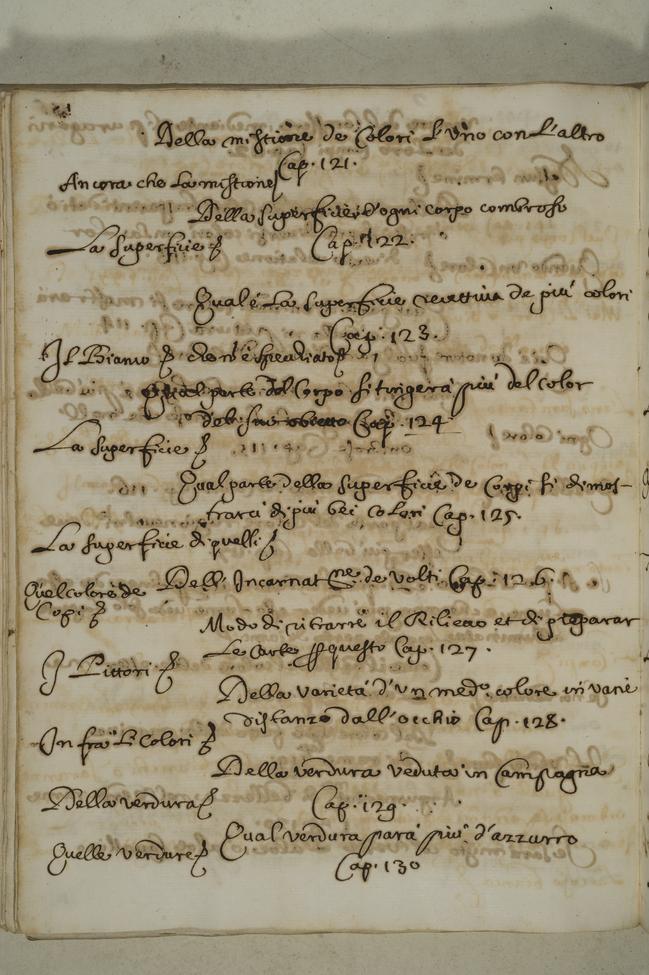 Della mistione de Colori l'uno con l'altro
Cap. 121.
Ancora che la mistione
Della superficie d'ogni corpo ombroso
La superficie
Cap. 122.
Qual'è la superficie recettiva de più colori
Cap. 123.
Il Bianco
Qual parte del Corpo si tingerà più del color
del suo obietto Cap. 124
La superficie
Qual parte della superficie de Corpi si dimos-
trarà di più bei colori Cap. 125.
La superficie di quelli
Quel colore de
Dell'Incarnat.ne de Volti Cap. 126.
Copi
Modo di ritrarre il Rilievo et di preparar
Le Carte p questo Cap. 127.
I Pittori
Della varietà d'un med.o colore in varie
distanze dall'occhio Cap. 128.
In fra li Colori
Della verdura veduta in Campagna
Della verdura
Cap. 129.
Qual verdura parà più d'azzurro
Quelle verdure
Cap. 130